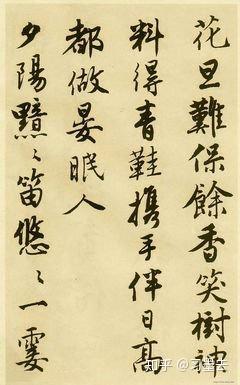 花旦難保餘香笑樹神
料得青鞋攜手伴日高
都做晏眠人
夕陽黯黯笛悠悠一霎
知乎 @习墨云